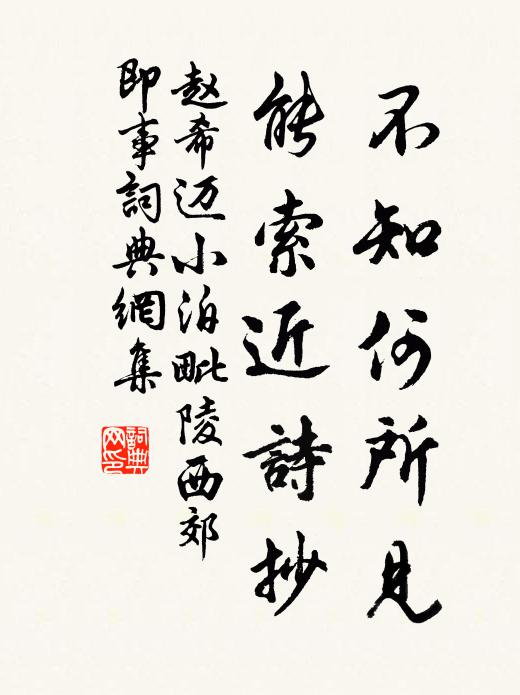 不知何所見
能索近詩抄
赵希迈小泊毗陵西郊
即事詞典網集
詞典网印